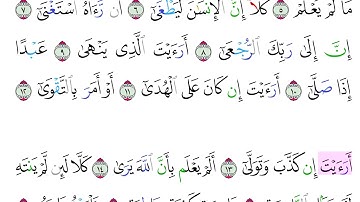 مَا لَمْ يَعْلَمْ ۝٥ كَلَّآ إِنَّ ٱلْإِنسَٰنَ لَيَطْغَىٰٓ ۝٦ أَن رَّءَاهُ ٱسْتَغْنَىٰٓ ۝٧
إِنَّ إِلَىٰ رَبِّكَ ٱلرُّجْعَىٰٓ ۝٨ أَرَءَيْتَ ٱلَّذِى يَنْهَىٰ ۝٩ عَبْدًا
إِذَا صَلَّىٰٓ ۝١٠ أَرَءَيْتَ إِن كَانَ عَلَى ٱلْهُدَىٰٓ ۝١١ أَوْ أَمَرَ بِٱلتَّقْوَىٰٓ ۝١٢
أَرَءَيْتَ إِن كَذَّبَ وَتَوَلَّىٰٓ ۝١٣ أَلَمْ يَعْلَم بِأَنَّ ٱللَّهَ يَرَىٰ ۝١٤ كَلَّا لَئِن لَّمْ يَنتَهِ